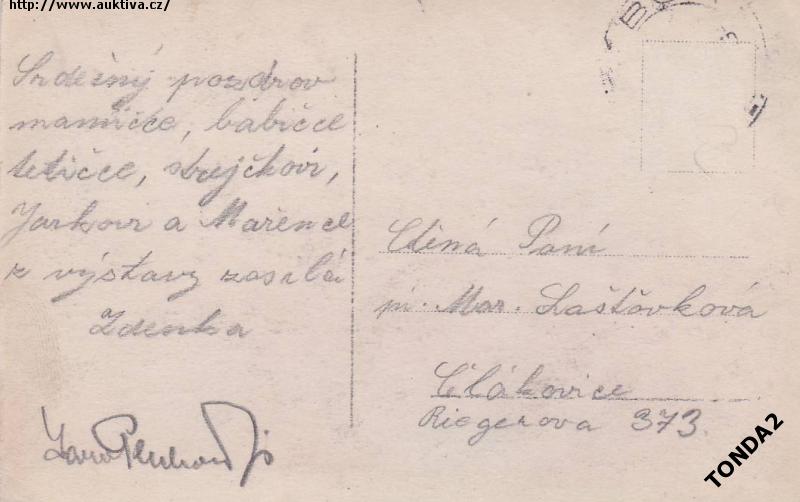 http://www.auktiva.cz/
Srdečný pozdrav
mamičce, babičce
tetičce, strejčkovi,
Jarkovi a Mařence
z výstavy zasílá
Zdenka
Ctěná Paní
pí. Mar. Lašťovková
Člákovice
Riegerova 373.
TONDA2